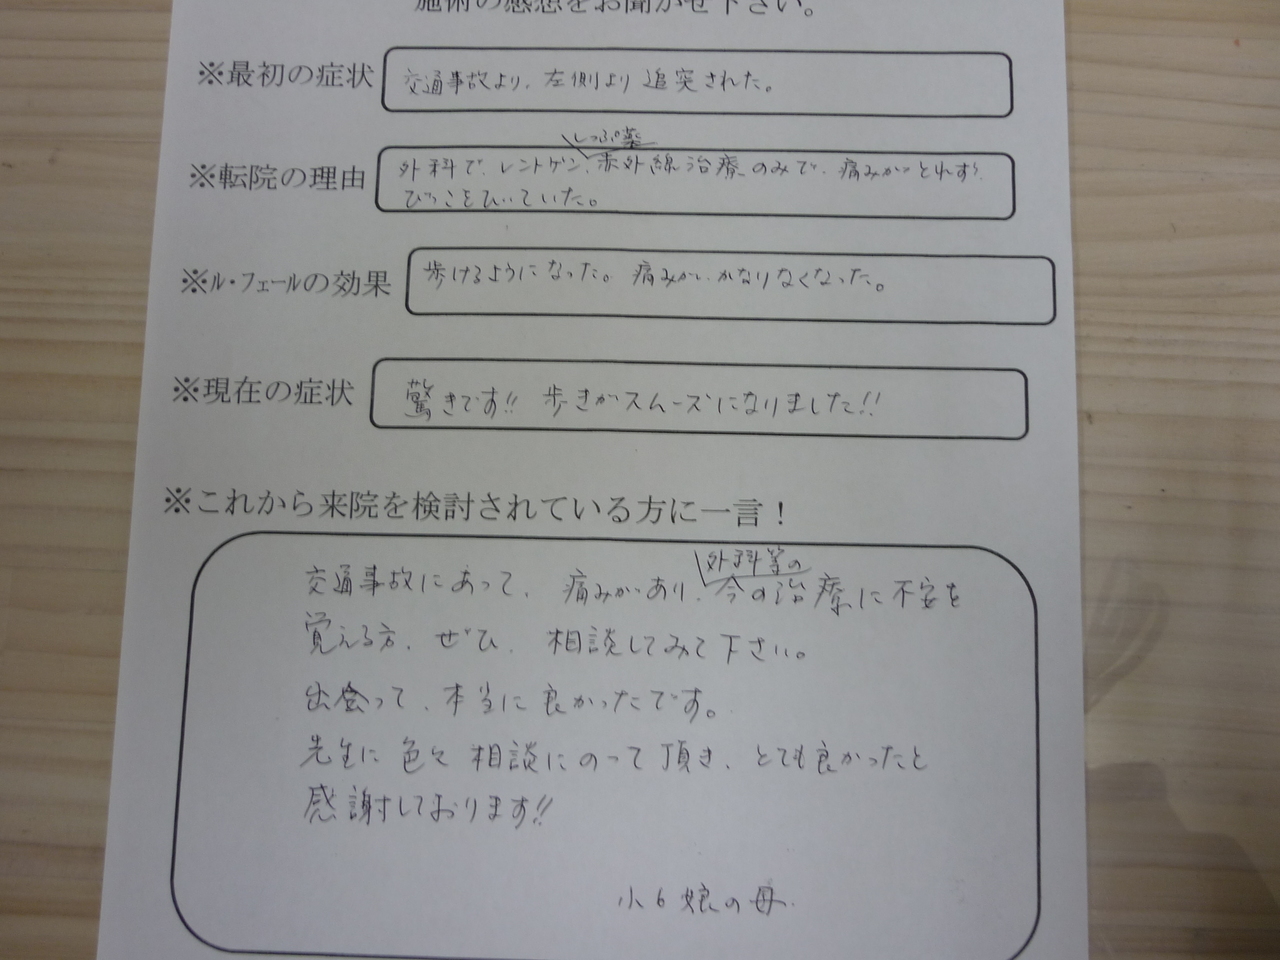 施術の感想をお聞かせ下さい。
※最初の症状
交通事故より、左側より追突された。
※転院の理由
しっぷ薬
外科で、レントゲン、赤外線治療のみで、痛みがとれず、
びっこをひいていた。
※ル・フェールの効果
歩けるようになった。痛みが、かなりなくなった。
※現在の症状
驚きです!! 歩きがスムーズになりました!!
※これから来院を検討されている方に一言！
外科等の
交通事故にあって、痛みがあり、今の治療に不安を
覚える方、ぜひ、相談してみて下さい。
出会って、本当に良かったです。
先生に色々相談にのって頂き、とても良かったと
感謝しております!!
小6娘の母